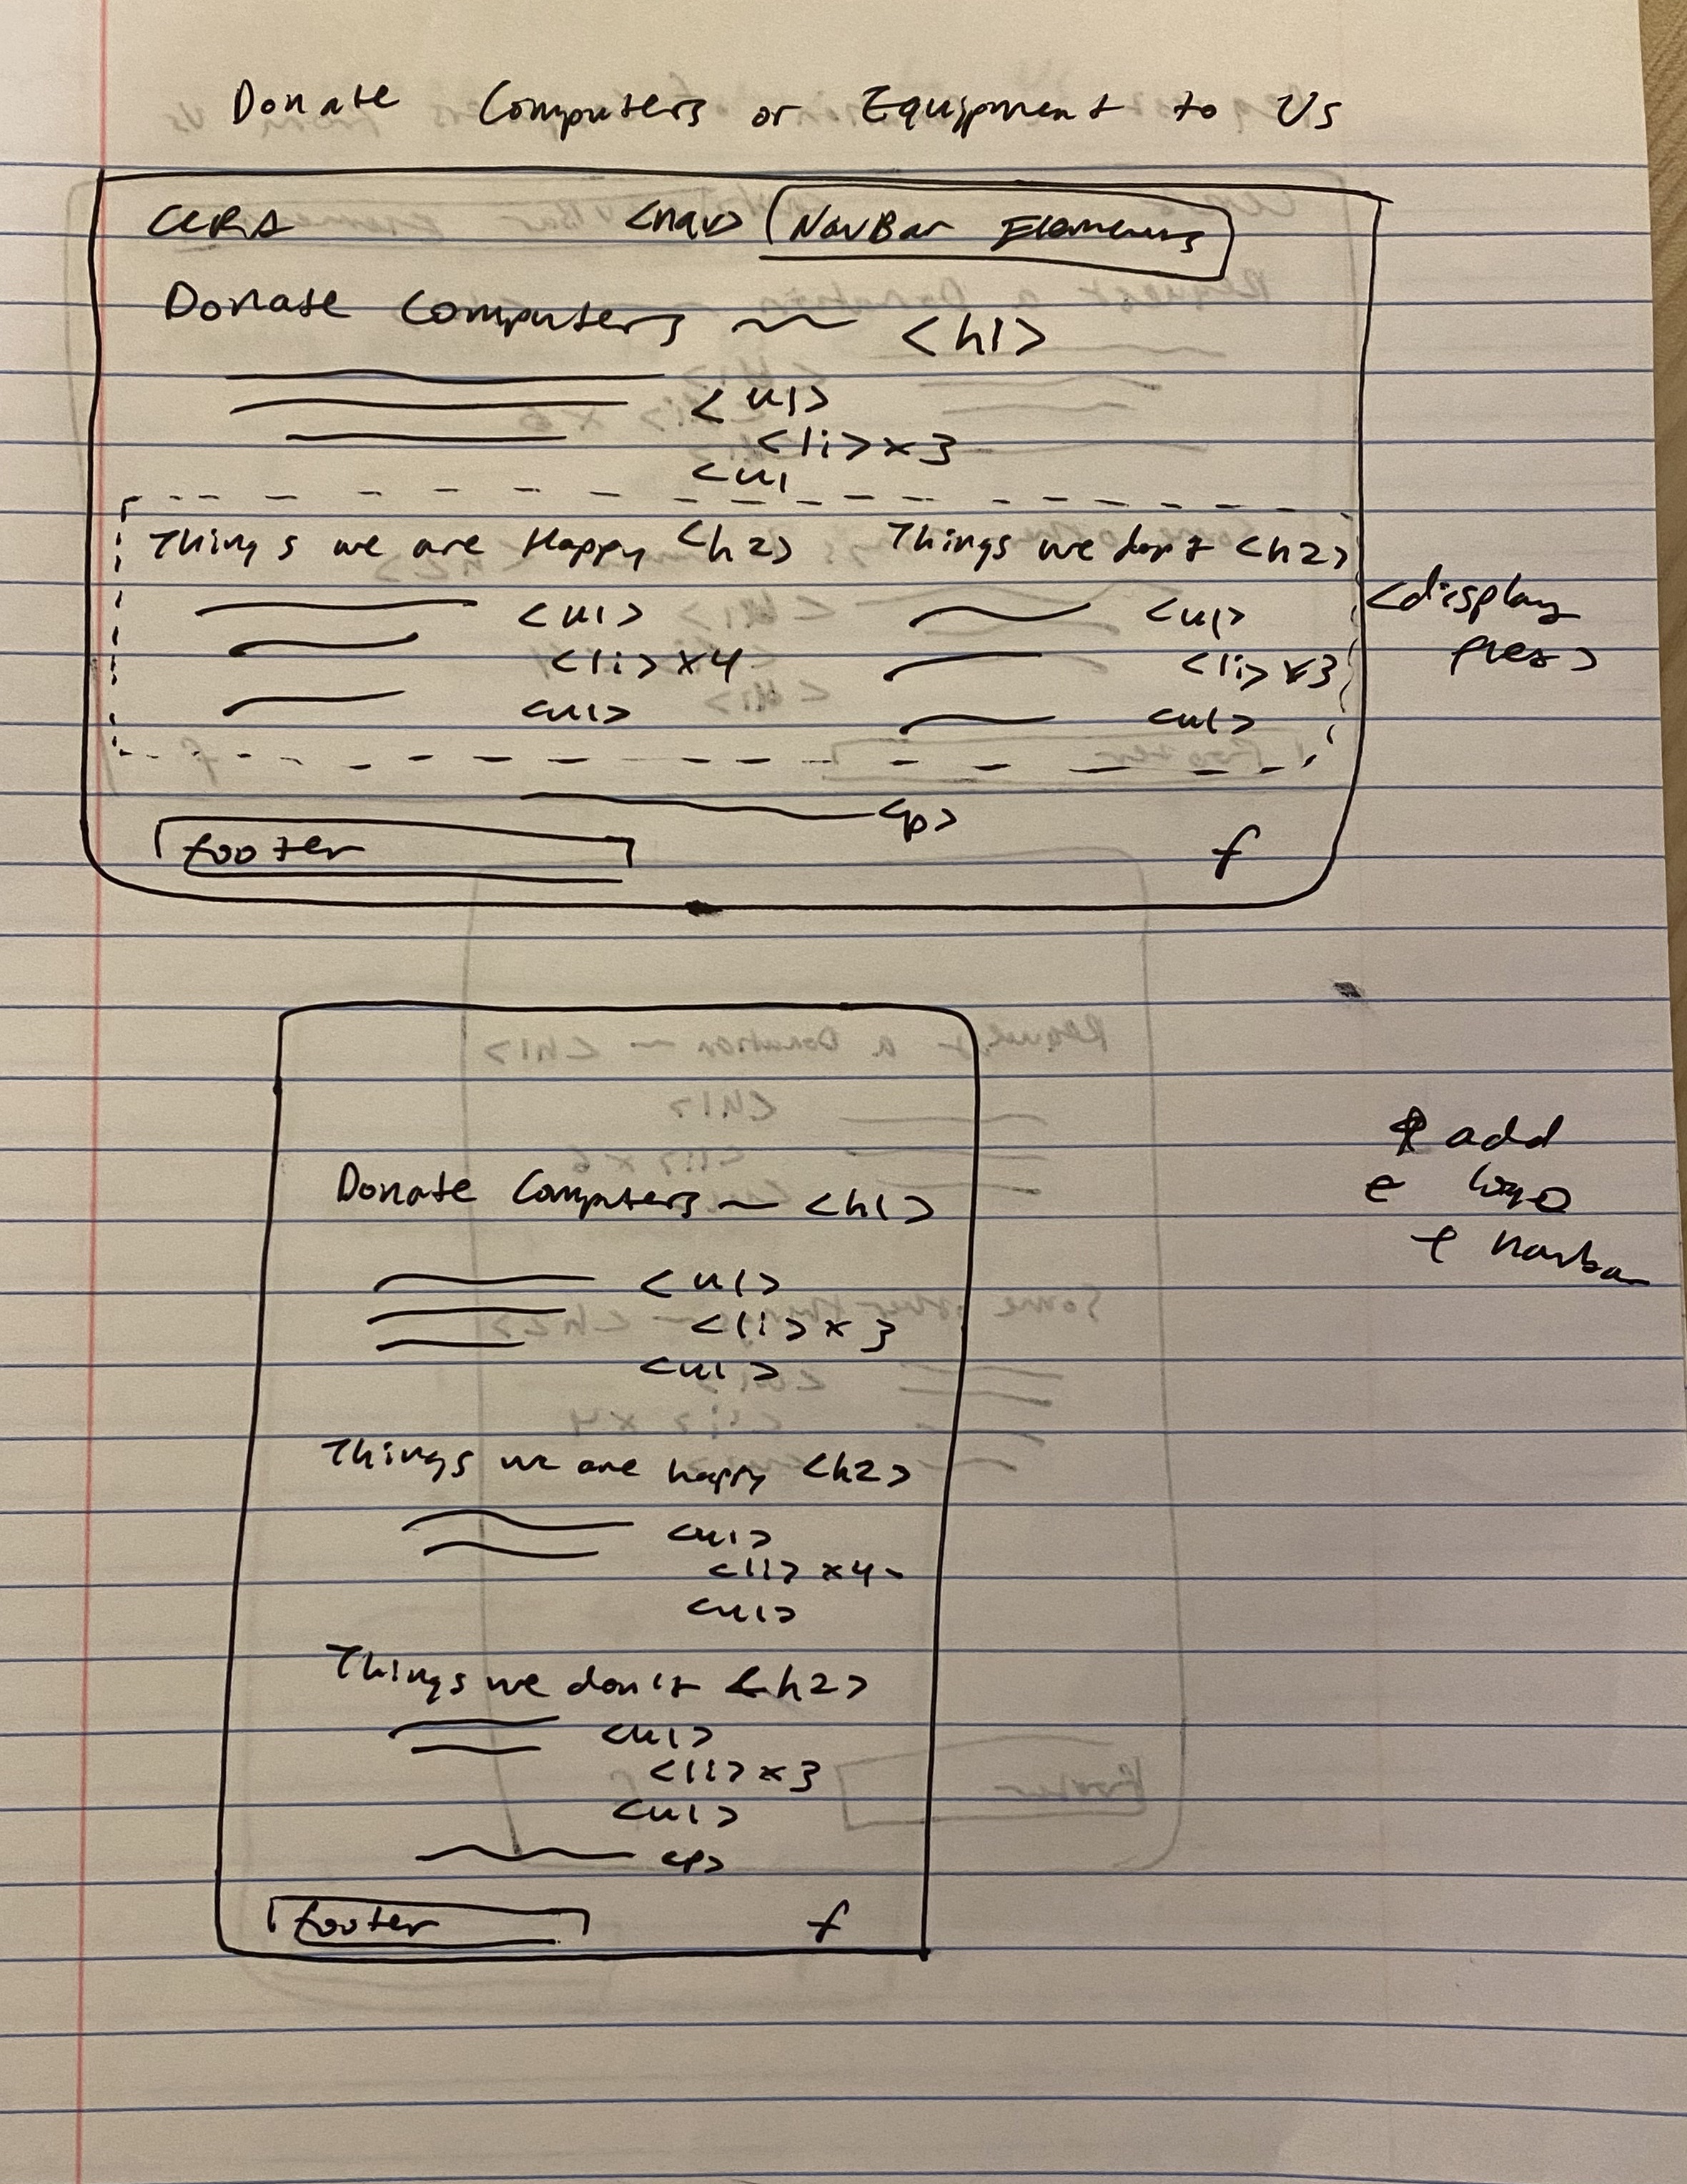 Donate Computers or Equipment to Us
<nav> NavBar Elements
Donate Computers <h1>
<ul>
<li> x 3
<ul
Things we are Happy <h2> Things we don't <h2>
<ul> <ul>
<li> x4 <li> x3
<ul> <ul>
<display
<p>
footer f
Donate Computers <h1>
<ul>
<li> x 3
<ul>
Things we are happy <h2>
<ul>
<li> x4
<ul>
Things we don't <h2>
<ul>
<li> x 3
<ul>
<p>
footer f
add
logo
navbar